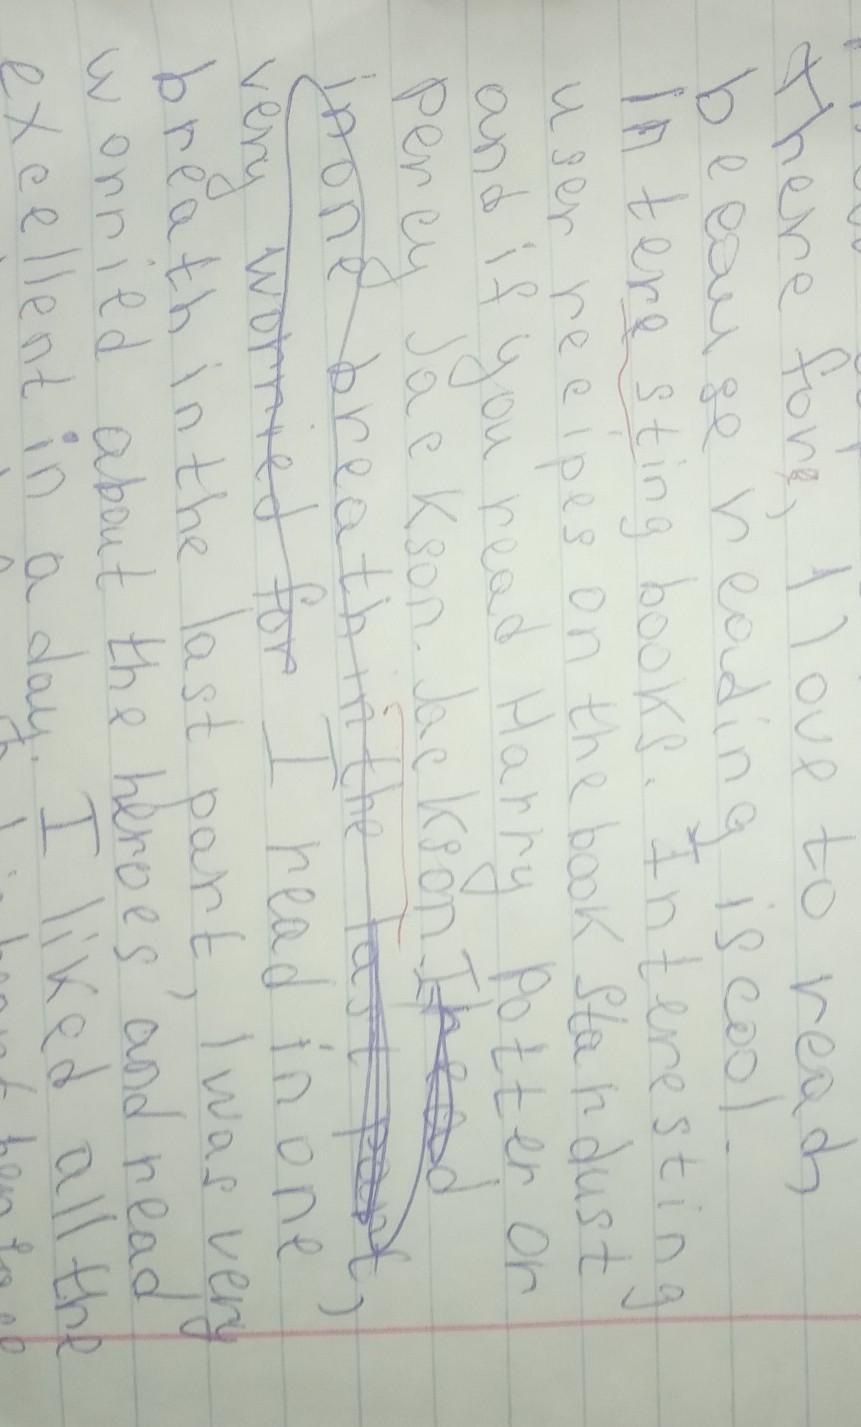 therefore, I love to read,
because reading is cool.
Interesting books. Interesting
user recipes on the book Stardust
and if you read Harry Potter or
Percy Jackson. Jackson. I read
in one breath in the last part,
very worried for I read in one
breath in the last part, I was very
worried about the heroes and read
excellent in a day. I liked all the